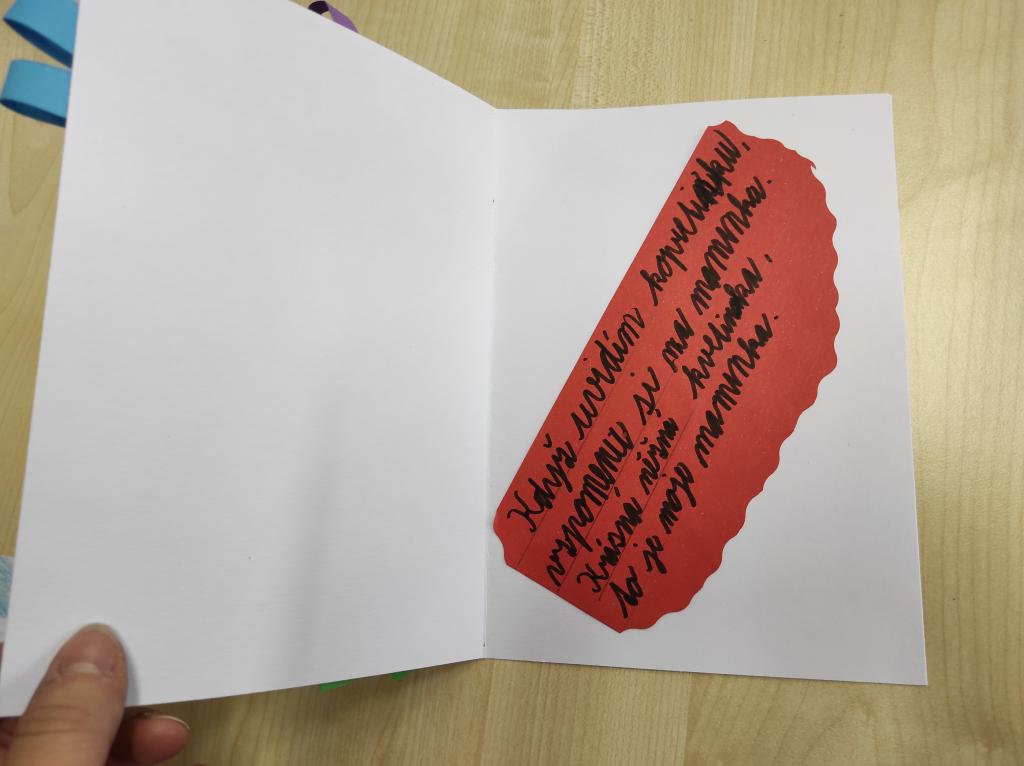 Když uvidím kopretinku,
vzpomenu si na maminku.
Krásná něžná květinka,
to je moje maminka.